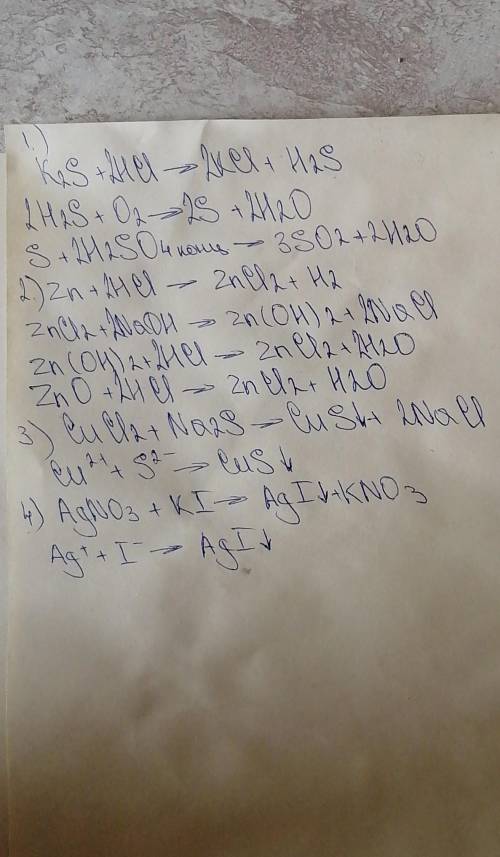 1)
K2S + 2HCl → 2KCl + H2S
2H2S + O2 → 2S + 2H2O
S + 2H2SO4 конц → 3SO2 + 2H2O
2) Zn + 2HCl → ZnCl2 + H2
ZnCl2 + 2NaOH → Zn(OH)2 + 2NaCl
Zn(OH)2 + 2HCl → ZnCl2 + 2H2O
ZnO + 2HCl → ZnCl2 + H2O
3) CuCl2 + Na2S → CuS↓ + 2NaCl
Cu²⁺ + S²⁻ → CuS↓
4) AgNO3 + KI → AgI↓ + KNO3
Ag⁺ + I⁻ → AgI↓